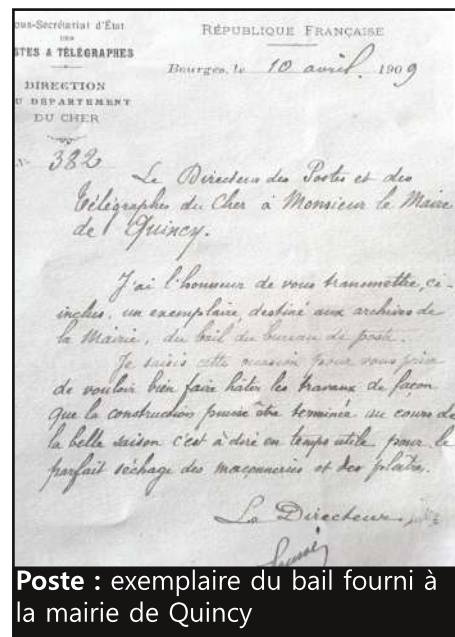 ous-Secrétariat d'État
DES
STES & TÉLÉGRAPHES
DIRECTION
U DÉPARTEMENT
DU CHER
N° 382
RÉPUBLIQUE FRANÇAISE
Bourges, le 10 avril 1909
Le Directeur des Postes et des
Télégraphes du Cher à Monsieur le Maire
de Quincy.
J'ai l'honneur de vous transmettre, ci-
inclus, un exemplaire, destiné aux archives de
la Mairie, du bail du bureau de poste.
Je saisis cette occasion pour vous prier
de vouloir bien faire hâter les travaux de façon
que la construction puisse être terminée au cours de
la belle saison c'est à dire en temps utile pour le
parfait séchage des maçonneries et des plâtres.
Le Directeur
Poste : exemplaire du bail fourni à
la mairie de Quincy